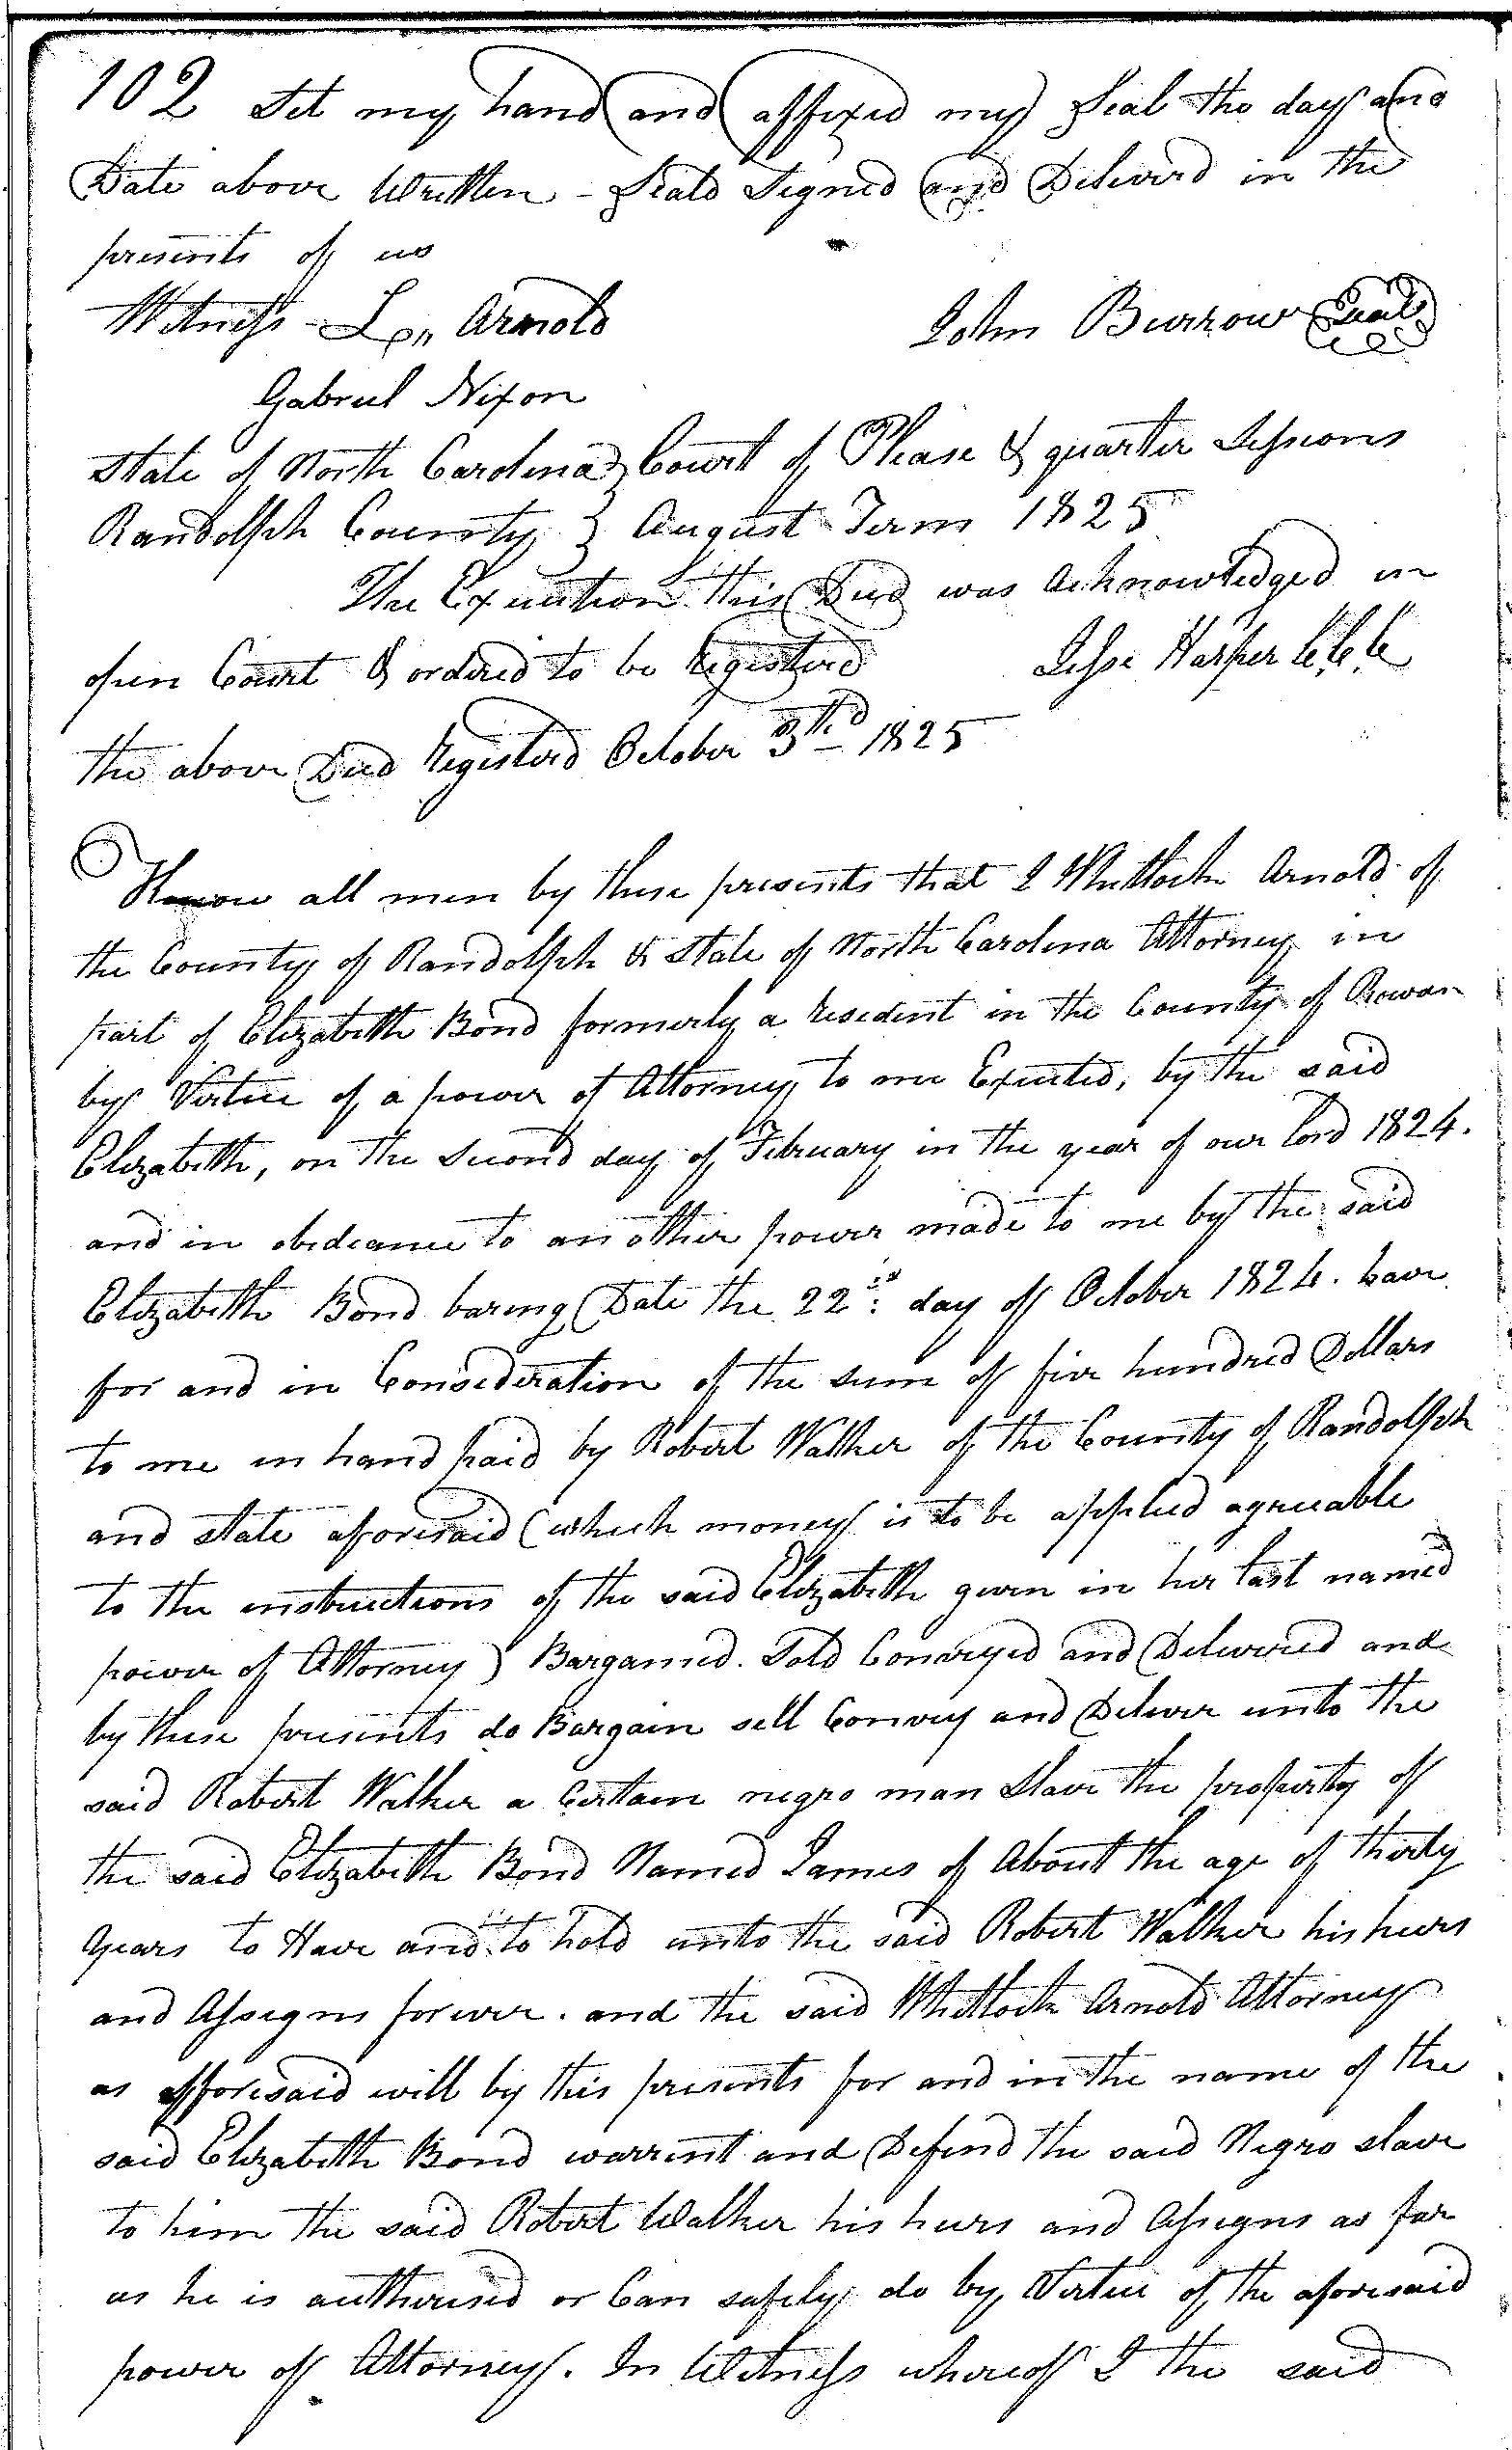 102 Set my hand and affixed my Seal the day and
Date above Written - Seald Signed and Deliverd in the
presents of us
Witness - Arnold John Burrow Seal
Gabriel Nixon
State of North Carolina } Court of Please & quarter Sessions
Randolph County } August Term 1825
The Execution this Deed was Acknowledged in
open Court & ordered to be Registerd Jesse Harper C.C.C
the above Deed Registerd October 3rd 1825
Know all men by these presents that I Whitlock Arnold of
the County of Randolph & State of North Carolina Attorney in
part of Elizabeth Bond formerly a resedent in the County of Rowan
by Virtue of a power of Attorney to me Executed, by the said
Elizabeth, on the Second day of February in the year of our lord 1824.
and in obedeance to an other power made to me by the said
Elizabeth Bond baring Date the 22nd: day off October 1824. have
for and in Consederation of the sum of five hundred Dollars
to me in hand paid by Robert Walker of the County of Randolph
and state aforesaid (which money is to be applied agreeable
to the instructions of the said Elizabeth given in her last named
power of Attorney) Barganed. Sold Conveyed and Delivered and
by these presents do Bargain sell Convey and Deliver unto the
said Robert Walker a Certain negro man Slave the property off
the said Elizabeth Bond Named James of About the age of thirty
years to Have and to hold unto the said Robert Walker his heirs
and Assigns forever. and the said Whitlock Arnold Attorney
as afforesaid will by this presents for and in the name of the
said Elizabeth Bond warrent and Defend the said Negro slave
to him the said Robert Walker his heirs and Assigns as far
as he is authorised or Can safely do by Virtue of the aforesaid
power off Attorney. In Witness whereoff I the said